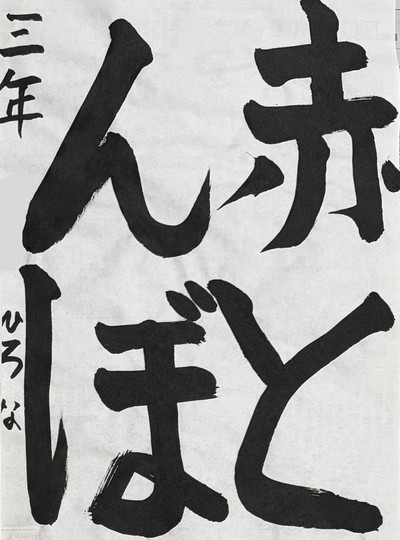 赤と
んぼ
三年 ひろな